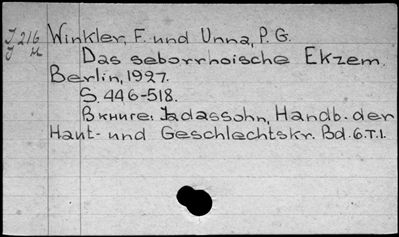 J 216 Winkler, F. und Unna, P. G.
J M
Das seborrhoische Ekzem.
Berlin, 1927.
S. 446-518.
Вкниге: Jadassohn, Handb. der
Haut- und Geschlechtskr. Bd. 6.T.1.